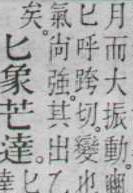 月而大振動。
匕呼跨切。變也
氣尙強。其出乙
矣。
匕象芒達。